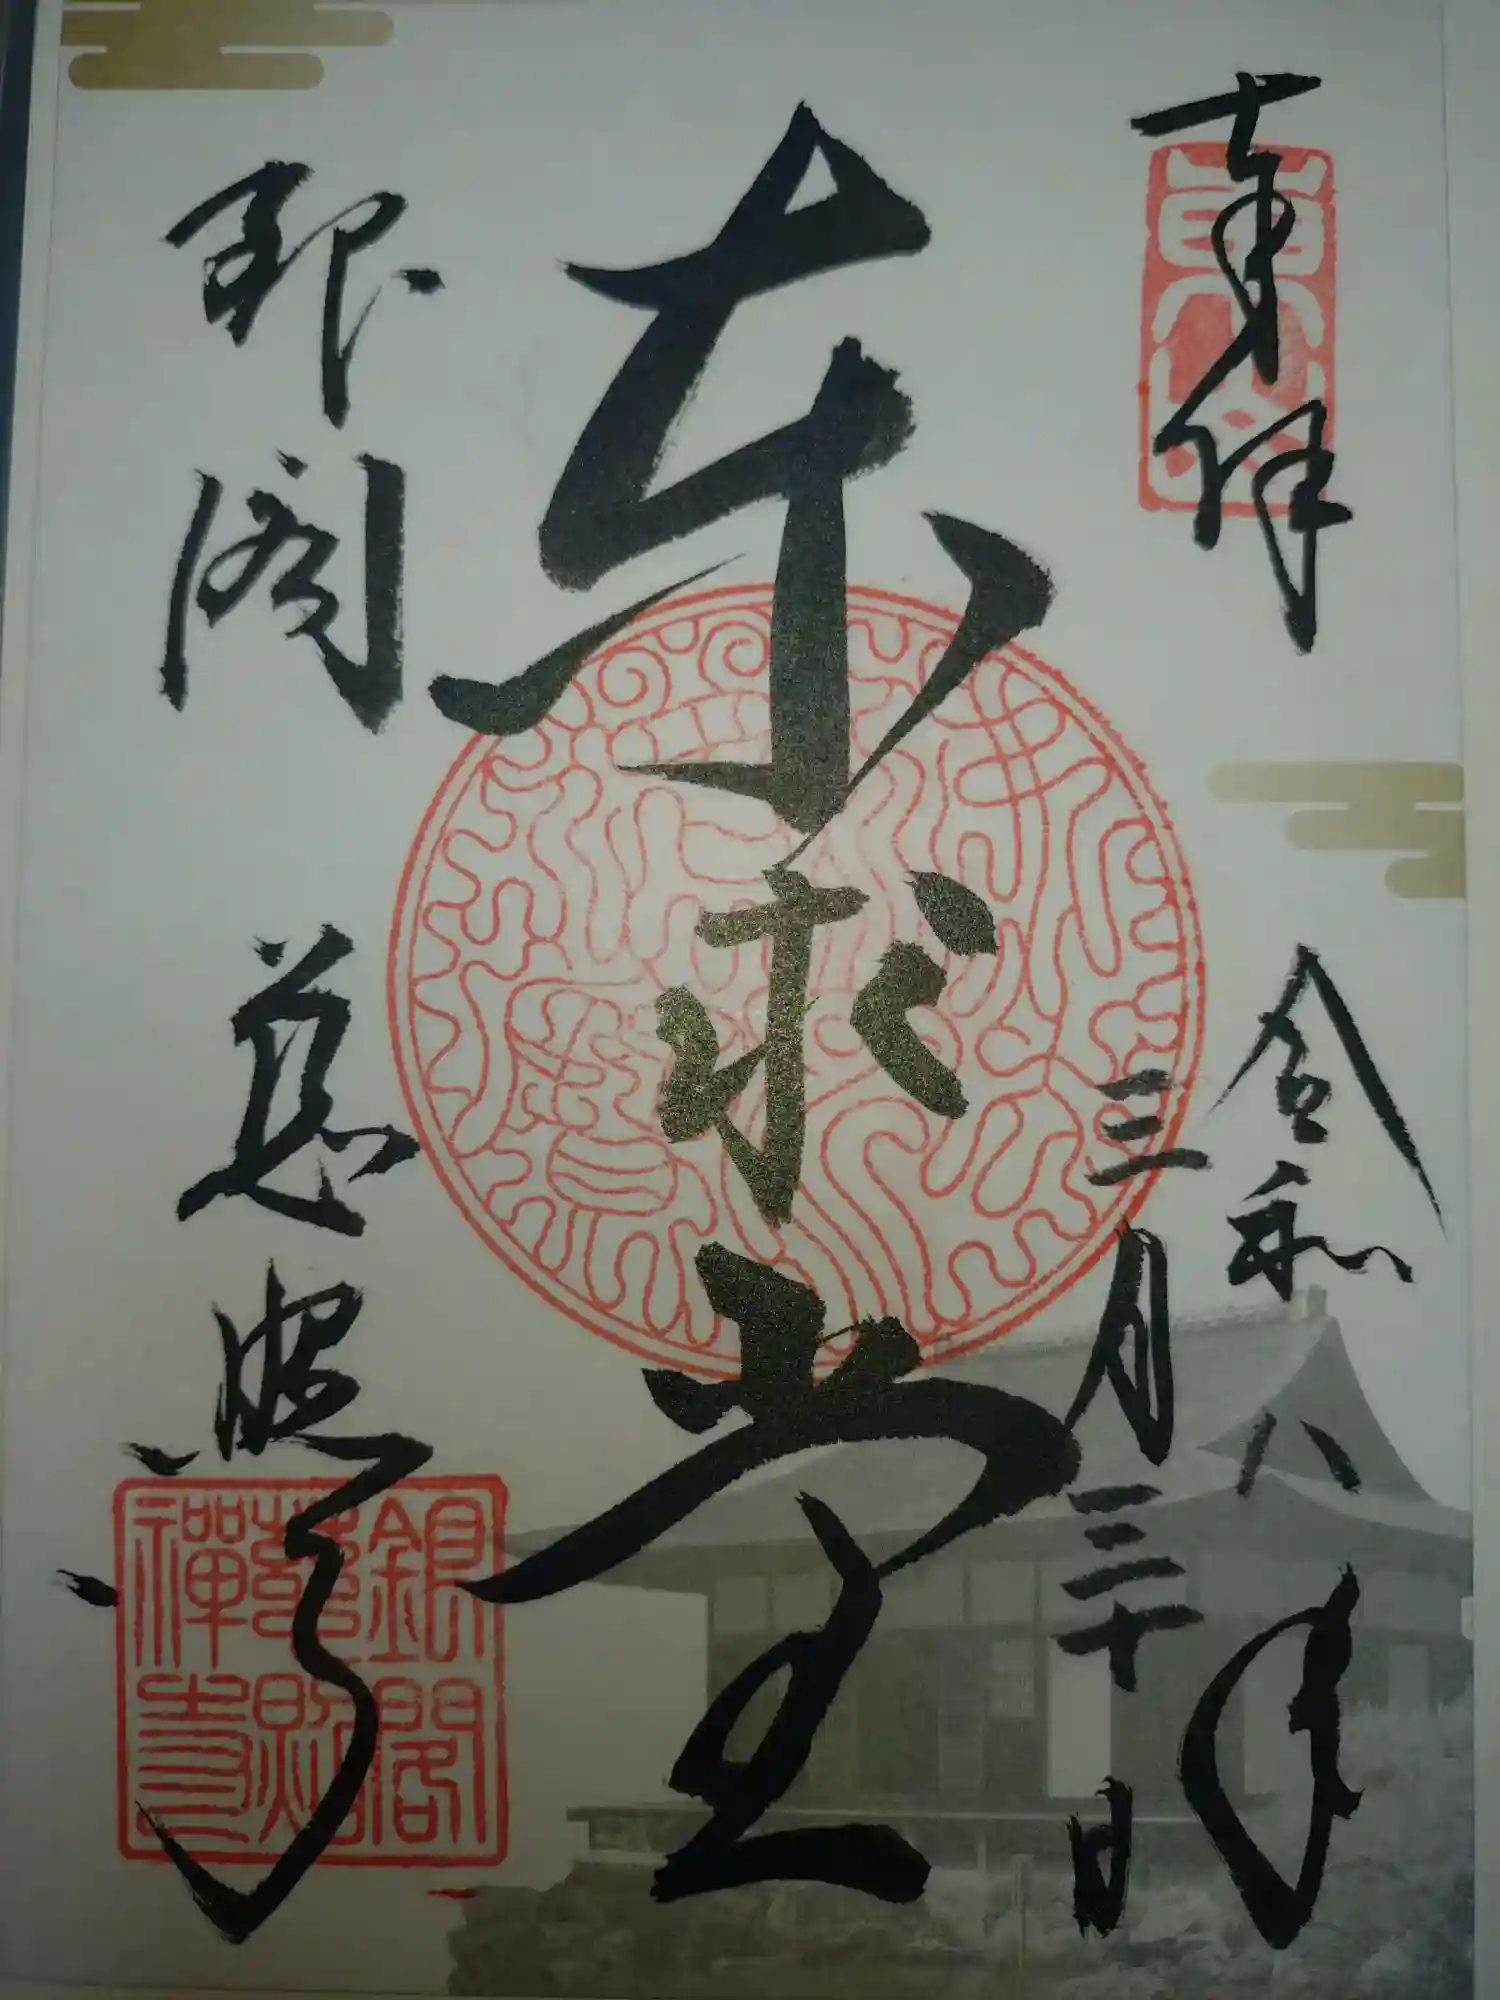 奉拝
令和八年
三月三十日
東求堂
銀閣
慈照寺
銀閣
慈照
禅寺